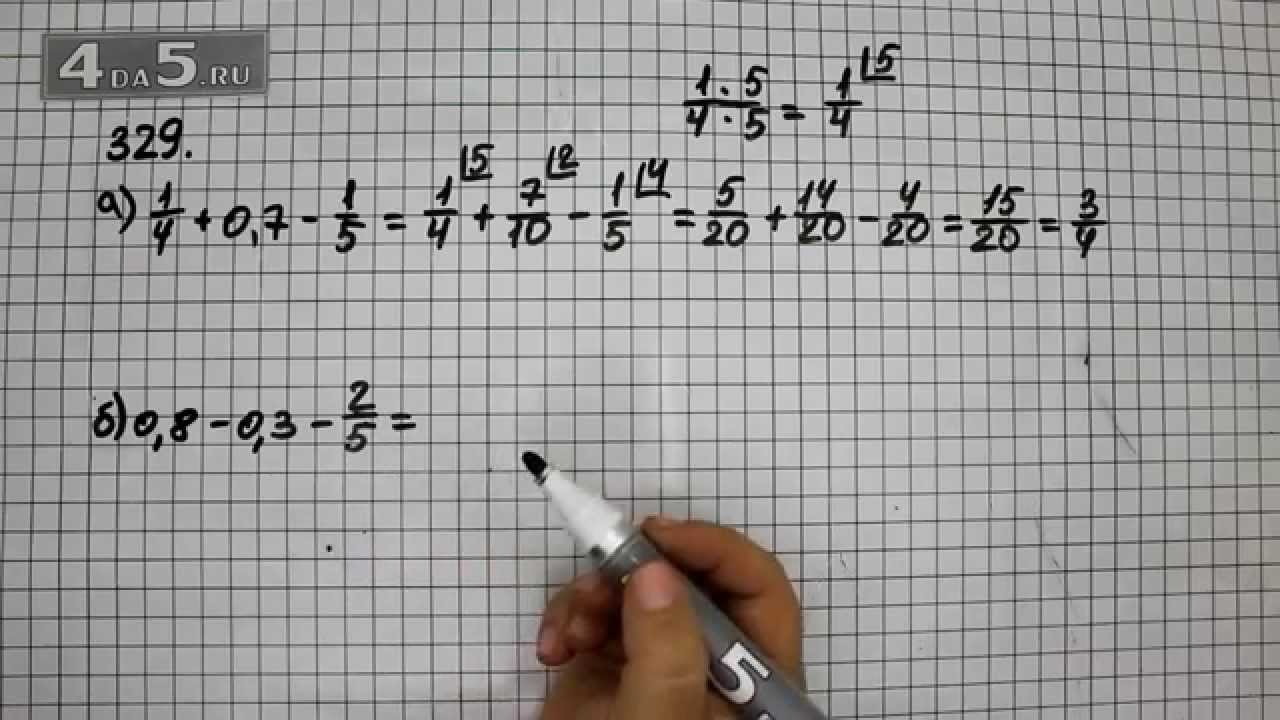 4DA5.RU
1·5/4·5 = 1/4 ⌊5
329.
а) 1/4 + 0,7 - 1/5 = 1/4 ⌊5 + 7/10 ⌊2 - 1/5 ⌊4 = 5/20 + 14/20 - 4/20 = 15/20 = 3/4
б) 0,8 - 0,3 - 2/5 =
5